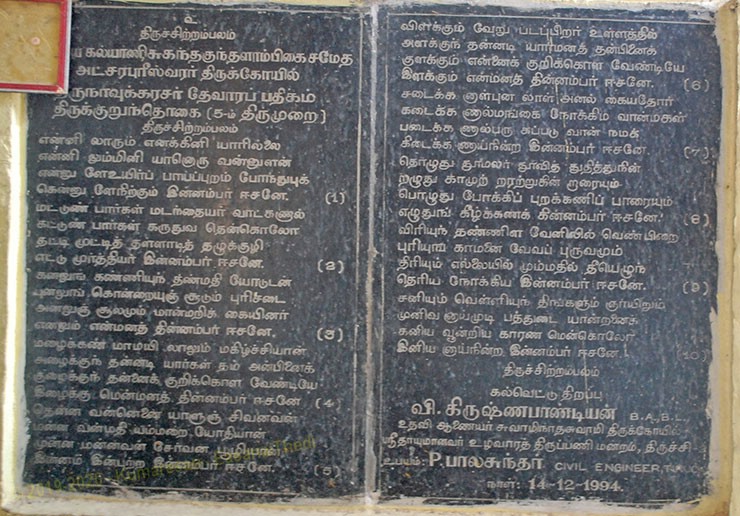 உ
திருச்சிற்றம்பலம்
கல்யாணிசுகந்தகுந்தளாம்பிகைசமேத
அட்சரபுரீஸ்வரர் திருக்கோயில்
திருநாவுக்கரசர் தேவாரப் பதிகம்
திருக்குறுந்தொகை (5-ம் திருமுறை)
திருச்சிற்றம்பலம்
என்னி லாரும் எனக்கினி யாரில்லை
என்னி லும்மினி யானொரு வன்னுளன்
என்னு ளேஉயிர்ப் பாய்ப்புறம் போந்துபுக்
கென்னு ளேநிற்கும் இன்னம்பர் ஈசனே. (1)
மட்டுண் பார்கள் மடந்தையர் வாட்கணால்
கட்டுண் பார்கள் கருதுவ தென்கொலோ
தட்டி முட்டித் தள்ளாடித் தழுக்குழி
எட்டு மூர்த்தியர் இன்னம்பர் ஈசனே. (2)
கனலுங் கண்ணியுந் தண்மதி யோடுடன்
புனலுங் கொன்றையுஞ் சூடும் புரிசடை
அனலுஞ் சூலமும் மான்மறிக் கையினர்
எனலும் என்மனத் தின்னம்பர் ஈசனே. (3)
மழைக்கண் மாமயி லாலும் மகிழ்ச்சியான்
அழைக்குந் தன்னடி யார்கள் தம் அன்பினைக்
குழைக்குந் தன்னைக் குறிக்கொள வேண்டியே
இழைக்கு மென்மனத் தின்னம்பர் ஈசனே (4)
தென்ன வன்னெனை யாளுஞ் சிவனவன்
மன்ன வன்மதி யம்மறை யோதியான்
முன்ன மன்னவன் சேரவன் பூழியான்
இன்னம் இன்புற்ற இன்னம்பர் ஈசனே. (5)
விளக்கும் வேறு படப்பிறர் உள்ளத்தில்
அளக்குந் தன்னடி யார்மனத் தன்பினைக்
குளக்கும் என்னைக் குறிக்கொள வேண்டியே
இளக்கும் என்மனத் தின்னம்பர் ஈசனே. (6)
சடைக்க ணாள்புன லாள் அனல் கையதோர்
கடைக்க ணால்மங்கை நோக்கிம வான்மகள்
படைக்க ணால்பருகப்படு வான் நமக்
கிடைக்க ணாய்நின்ற இன்னம்பர் ஈசனே. (7)
தொழுது தூமலர் தூவித் துதித்துநின்
றழுது காமுற் றரற்றுகின் றாரையும்
பொழுது போக்கிப் புறக்கணிப் பாரையும்
எழுதுங் கீழ்க்கணக் கின்னம்பர் ஈசனே. (8)
விரியுந் தண்ணிள வேனிலில் வெண்பிறை
புரியுங் காமனை வேவப் புருவமும்
திரியும் எல்லையில் மும்மதில் தீயெழுந்
தெரிய நோக்கிய இன்னம்பர் ஈசனே. (9)
சனியும் வெள்ளியுந் திங்களும் ஞாயிறும்
முனிவ னாய்முடி பத்துடை யான்றனைக்
கனிய வூன்றிய காரண மென்கொலோ
இனிய னாய்நின்ற இன்னம்பர் ஈசனே. (10)
திருச்சிற்றம்பலம்
கல்வெட்டு திறப்பு
வி. கிருஷ்ணபாண்டியன் B.A.,B.L.,
உதவி ஆணையர் சுவாமிநாதசுவாமி திருக்கோயில்
ஸ்ரீதாயுமானவர் உழவாரத் திருப்பணி மன்றம், திருச்சி-
உபயம்: P.பாலசுந்தர் CIVIL ENGINEER,
நாள்: 14-12-1994.